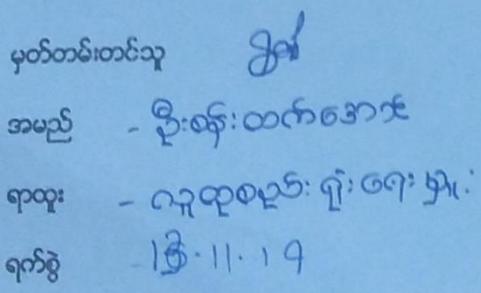 မှတ်တမ်းတင်သူ
အမည် - ဦးစန်းထက်အောင်
ရာထူး - လူထုစည်းရုံးရေးမှူး
ရက်စွဲ 13.11.19